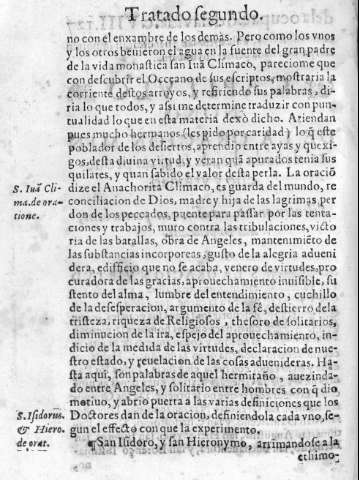 Tratado segundo.
no con el enxambre de los demas. Pero como los vnos
y los otros beuieron el agua en la fuente del gran padre
de la vida monastica san Iuã Climaco, pareciome que
con descubrir el Occeano de sus escriptos, mostraria la
corriente destos arroyos, y refiriendo sus palabras, di-
ria lo que todos, y assi me determine traduzir con pun-
tualidad lo que en esta materia dexò dicho. Atiendan
pues mucho hermanos (les pido por caridad) lo q̃ este
poblador de los desiertos, aprendio entre ayas y que xi-
gos, desta diuina virtud, y veran quã apurados tenia sus
quilates, y quan sabido el valor desta perla. La oraciõ
S. Iuã Cli-
ma. de ora-
tione.
dize el Anachorita Climaco, es guarda del mundo, re
conciliacion de Dios, madre y hija de las lagrimas, per
don de los peccados, puente para passar por las tenta-
ciones y trabajos, muro contra las tribulaciones, victo
ria de las batallas, obra de Angeles, mantenimiẽto de
las substancias incorporeas, gusto de la alegria adueni
dera, edificio que no se acaba, venero de virtudes, pro
curadora de las gracias, aprouechamiento inuisible, su
stento del alma, lumbre del entendimiento, cuchillo
de la desesperacion, argumento de la fê, destierro de la
tristeza, riqueza de Religiosos, thesoro de solitarios,
diminucion de la ira, espejo del aprouechamiento, in-
dicio de la medida de las virtudes, declaracion de nue-
stro estado, y reuelacion de las cosas aduenideras. Ha-
sta aqui, son palabras de aquel hermitaño, auezinda-
do entre Angeles, y solitario entre hombres con q̃ dio
motiuo, y abrio puerta a las varias definiciones que los
S. Isidorus.
& Hiero.
de orat.
Doctores dan de la oracion, definiendola cada vno, se-
gun el effecto con que la experimento.
¶San Isidoro, y san Hieronymo, arrimandose a la
ethimo-